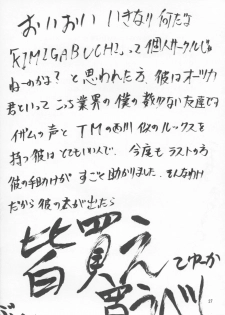 おいおい いきなり何だよ
「KIMIGABUCHI」って個人サークルじゃ
ねーのかよ? と思われた方、彼はオーツカ
君といって こっち業界の僕の数少ない友達です
イサムの声とTMの西川似のルックスを
持つ彼はとてもいい人で、今度もラストの方
彼の手助けが すごく助かりました。そんなわけ
だから 彼の本が出たら
皆買え
てゆーか
買うべし
37